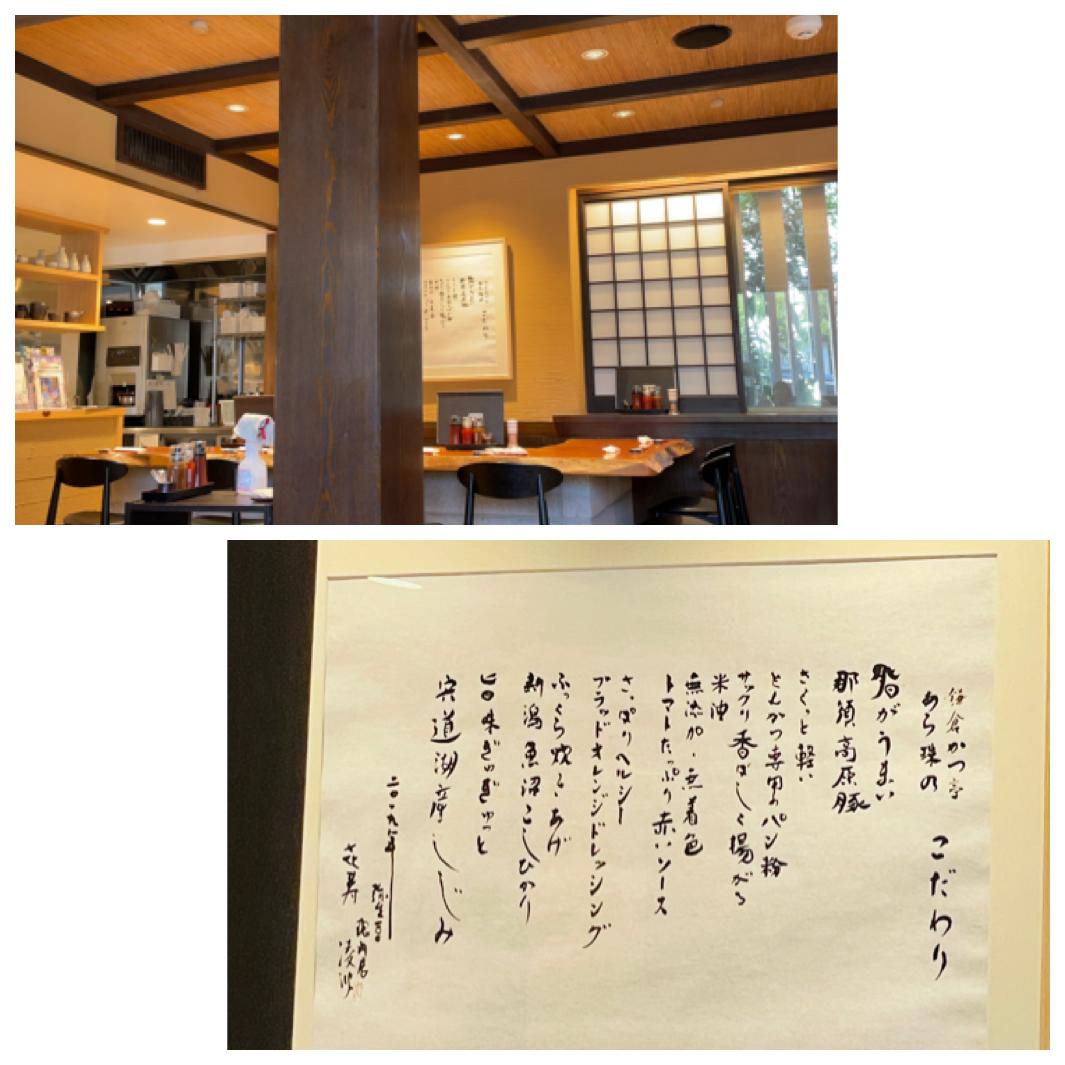 鎌倉かつ亭
あら珠の こだわり
脂がうまい
那須高原豚
さくっと軽い
とんかつ専用のパン粉
サックリ香ばしく揚がる
米油
無添加・無着色
トマトたっぷり赤いソース
さっぱりヘルシー
ブラッドオレンジドレッシング
ふっくら炊きあげ
新潟魚沼こしひかり
旨味ぎゅぎゅっと
宍道湖産しじみ
二〇一九年